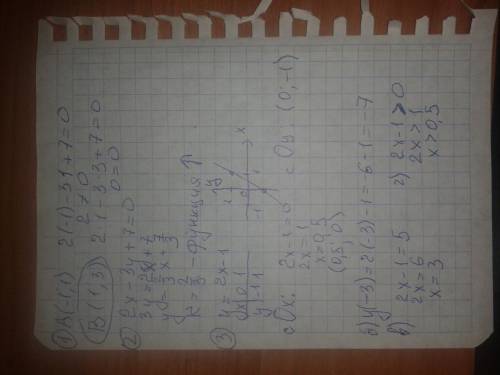 ① A(-1;1) 2(-1)-3·1+7=0
2≠0
B(1;3) 2·1-3·3+7=0
0=0
② 2x-3y+7=0
3y=2x+7
y=2/3x+7/3
k=2/3 - функция ↑
③ y=2x-1
x 0 1
y -1 1
y
x
с Ox: 2x-1=0
2x=1
x=0,5
(0,5; 0)
с Oy: (0;-1)
б) y(-3)=2(-3)-1=-6-1=-7
в) 2x-1=5
2x=6
x=3
г) 2x-1>0
2x>1
x>0,5